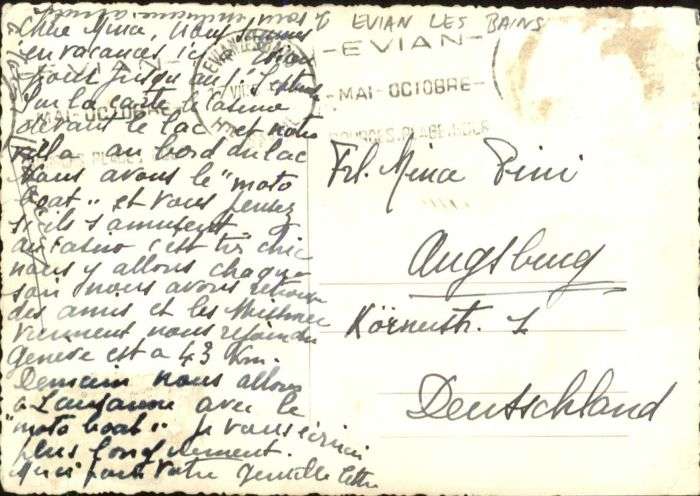 EVIAN LES BAINS
Chère Mina, nous sommes
en vacances ici
pour jusqu'au 1 Septembre
Sur la carte le Casino
devant le lac et notre
villa au bord du lac
Nous avons le "moto
boat" et vous pensez
s'ils s'amusent
au Casino c'est très chic
nous y allons chaque
soir nous avons retrouvé
des amis et les
viennent nous rejoindre
Genève est à 43 Km.
Demain nous allons
à Lausanne avec le
"moto boat" Je vous écrirai
plus longuement.
Merci pour votre gentille lettre
EVIAN
MAI-OCTOBRE
SOURCES.PLAGE.GOLF
EVIAN LES BAINS
MAI-OCTOBRE
Frl. Mina Pini
Augsburg
Körnerstr. 1
Deutschland